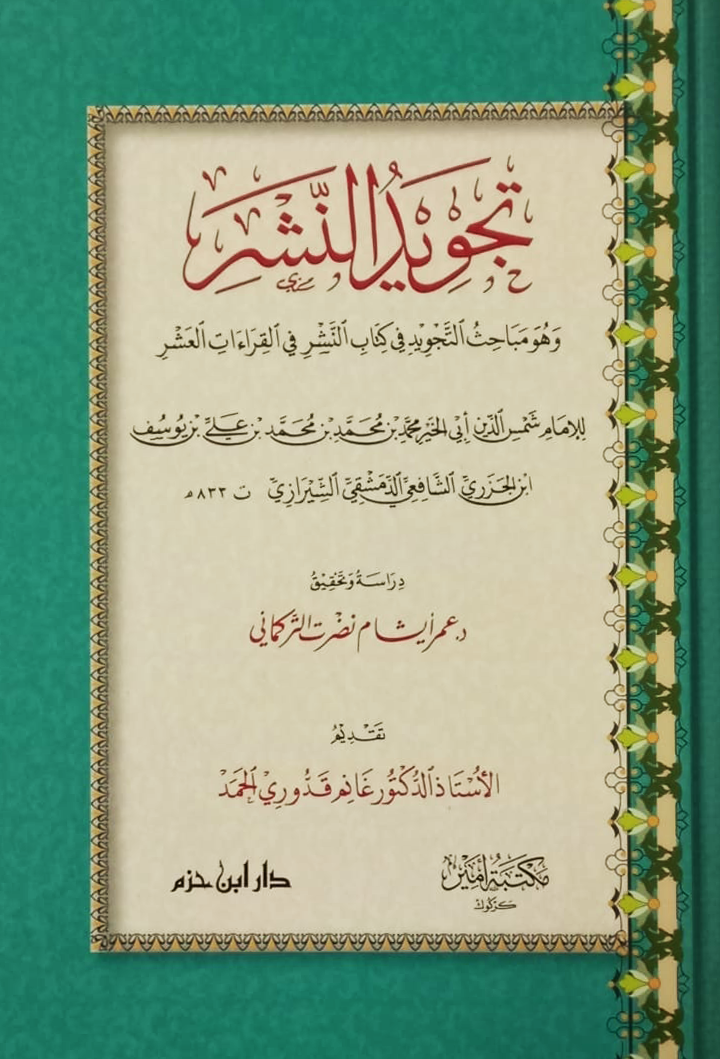 تَجْوِيدُ النَّشْرِ
وَهُوَ مَبَاحِثُ التَّجْوِيدِ فِي كِتَابِ النَّشْرِ فِي القِرَاءَاتِ العَشْرِ
لِلإِمَامِ شَمْسِ الدِّينِ أَبِي الخَيْرِ مُحَمَّدِ بْنِ مُحَمَّدِ بْنِ مُحَمَّدِ بْنِ عَلِيِّ بْنِ يُوسُفَ
ابْنِ الجَزَرِيِّ الشَّافِعِيِّ الدِّمَشْقِيِّ الشِّيرَازِيِّ ت ٨٣٣ه
دِرَاسَةُ وَتَحْقِيقُ
د. عمر أيشام نصرت التركماني
تَقْدِيمُ
الأُسْتَاذِ الدُّكْتُورِ غَانِمِ قَدُّورِي الحَمَدِ
مَكْتَبَةُ أَمِير
كَرْكُوك
دار ابن حزم